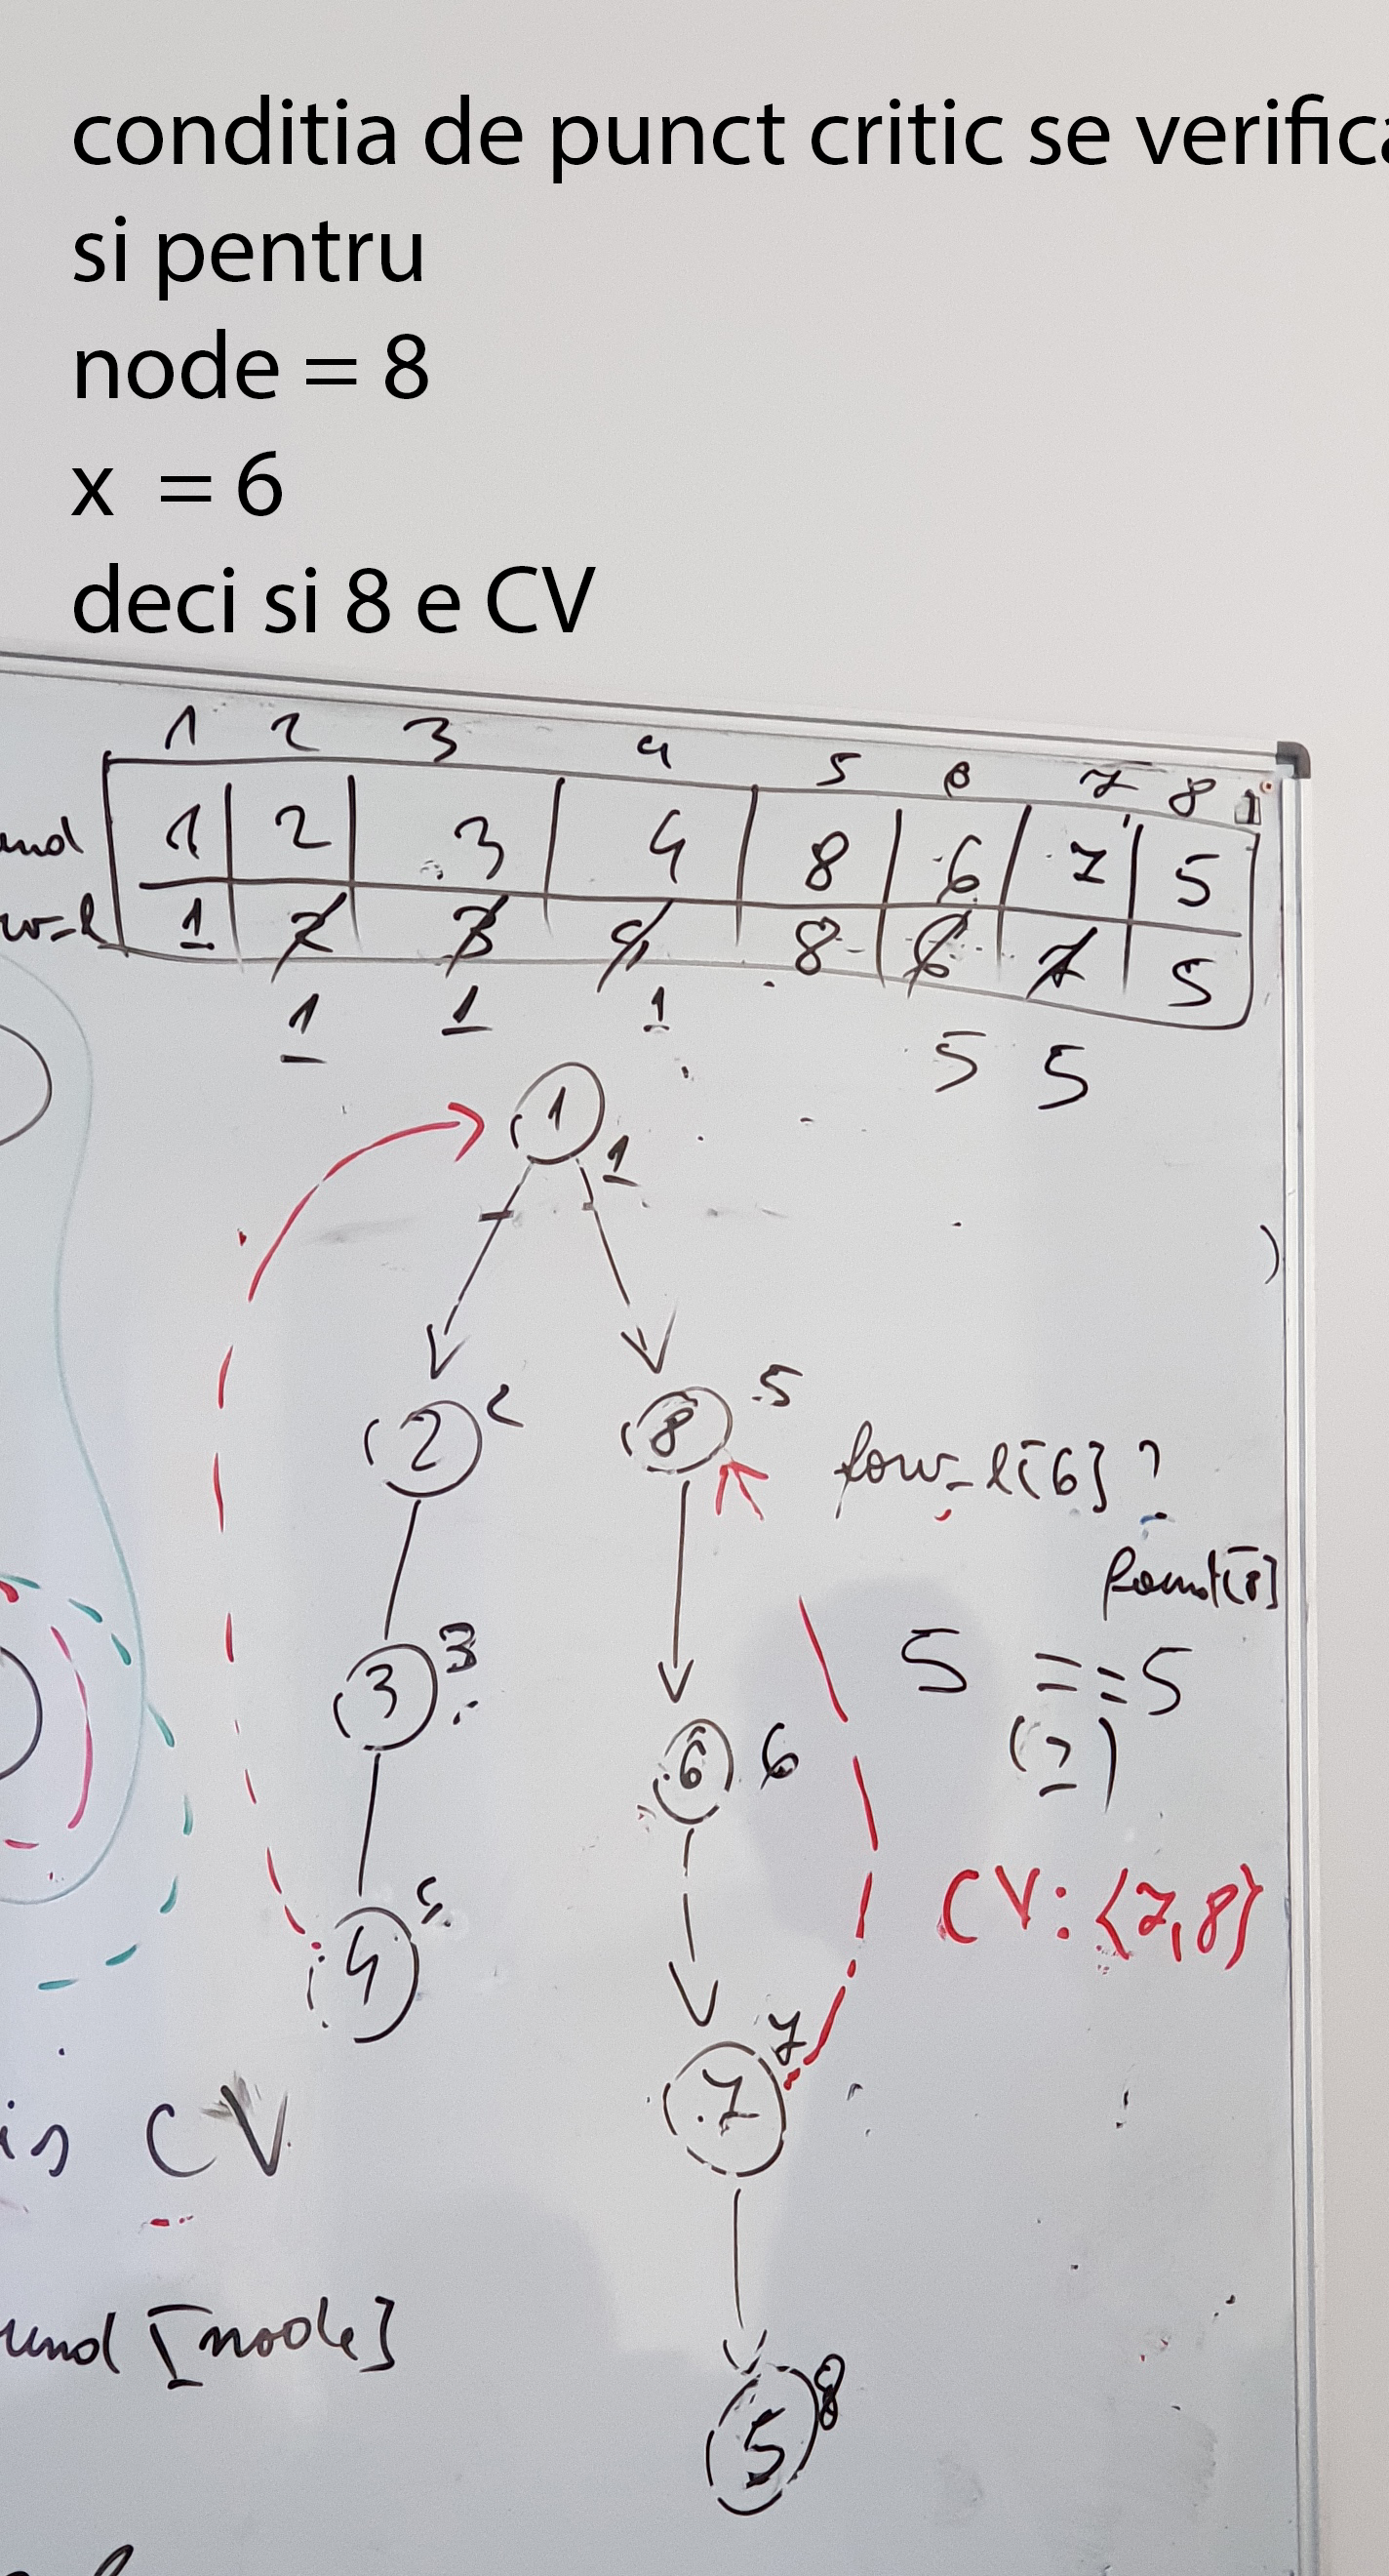 conditia de punct critic se verifica
si pentru
node = 8
x = 6
deci si 8 e CV
1 2 3 4 5 6 7 8
und 1 2 3 4 8 6 7 5
w-l 1 2 3 4 8 6 7 5
1 1 1 5 5
1
1
2 2
8 5
low_l[6] ?
found[8]
5 == 5
(≥)
3 3
6 6
CV: {7,8}
4
7 7
is CV
und [node]
5 8